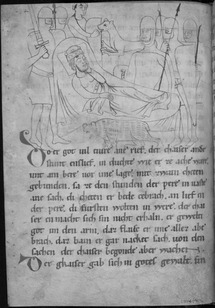 So er got uil tiure ane rief. der chaiser ande
stunt entslief. in duchte wie er ze ache ware.
unt am bere uor ime lage. mit zwain cheten
gebunden. sa ze den stunden der pere in uaste
ane sach. di cheten er bede zebrach. an lief in
der pere. di fursten wolten in were. der chai
ser en macht sich sin nicht erhaln. er
im den arm. daz flaisc er ime allez abe
brach. daz bain er gar nacket sach. uon den
sachen der chaiser begonde aber wachen.
Der chaiser gab sich in gotes gewalt. sin